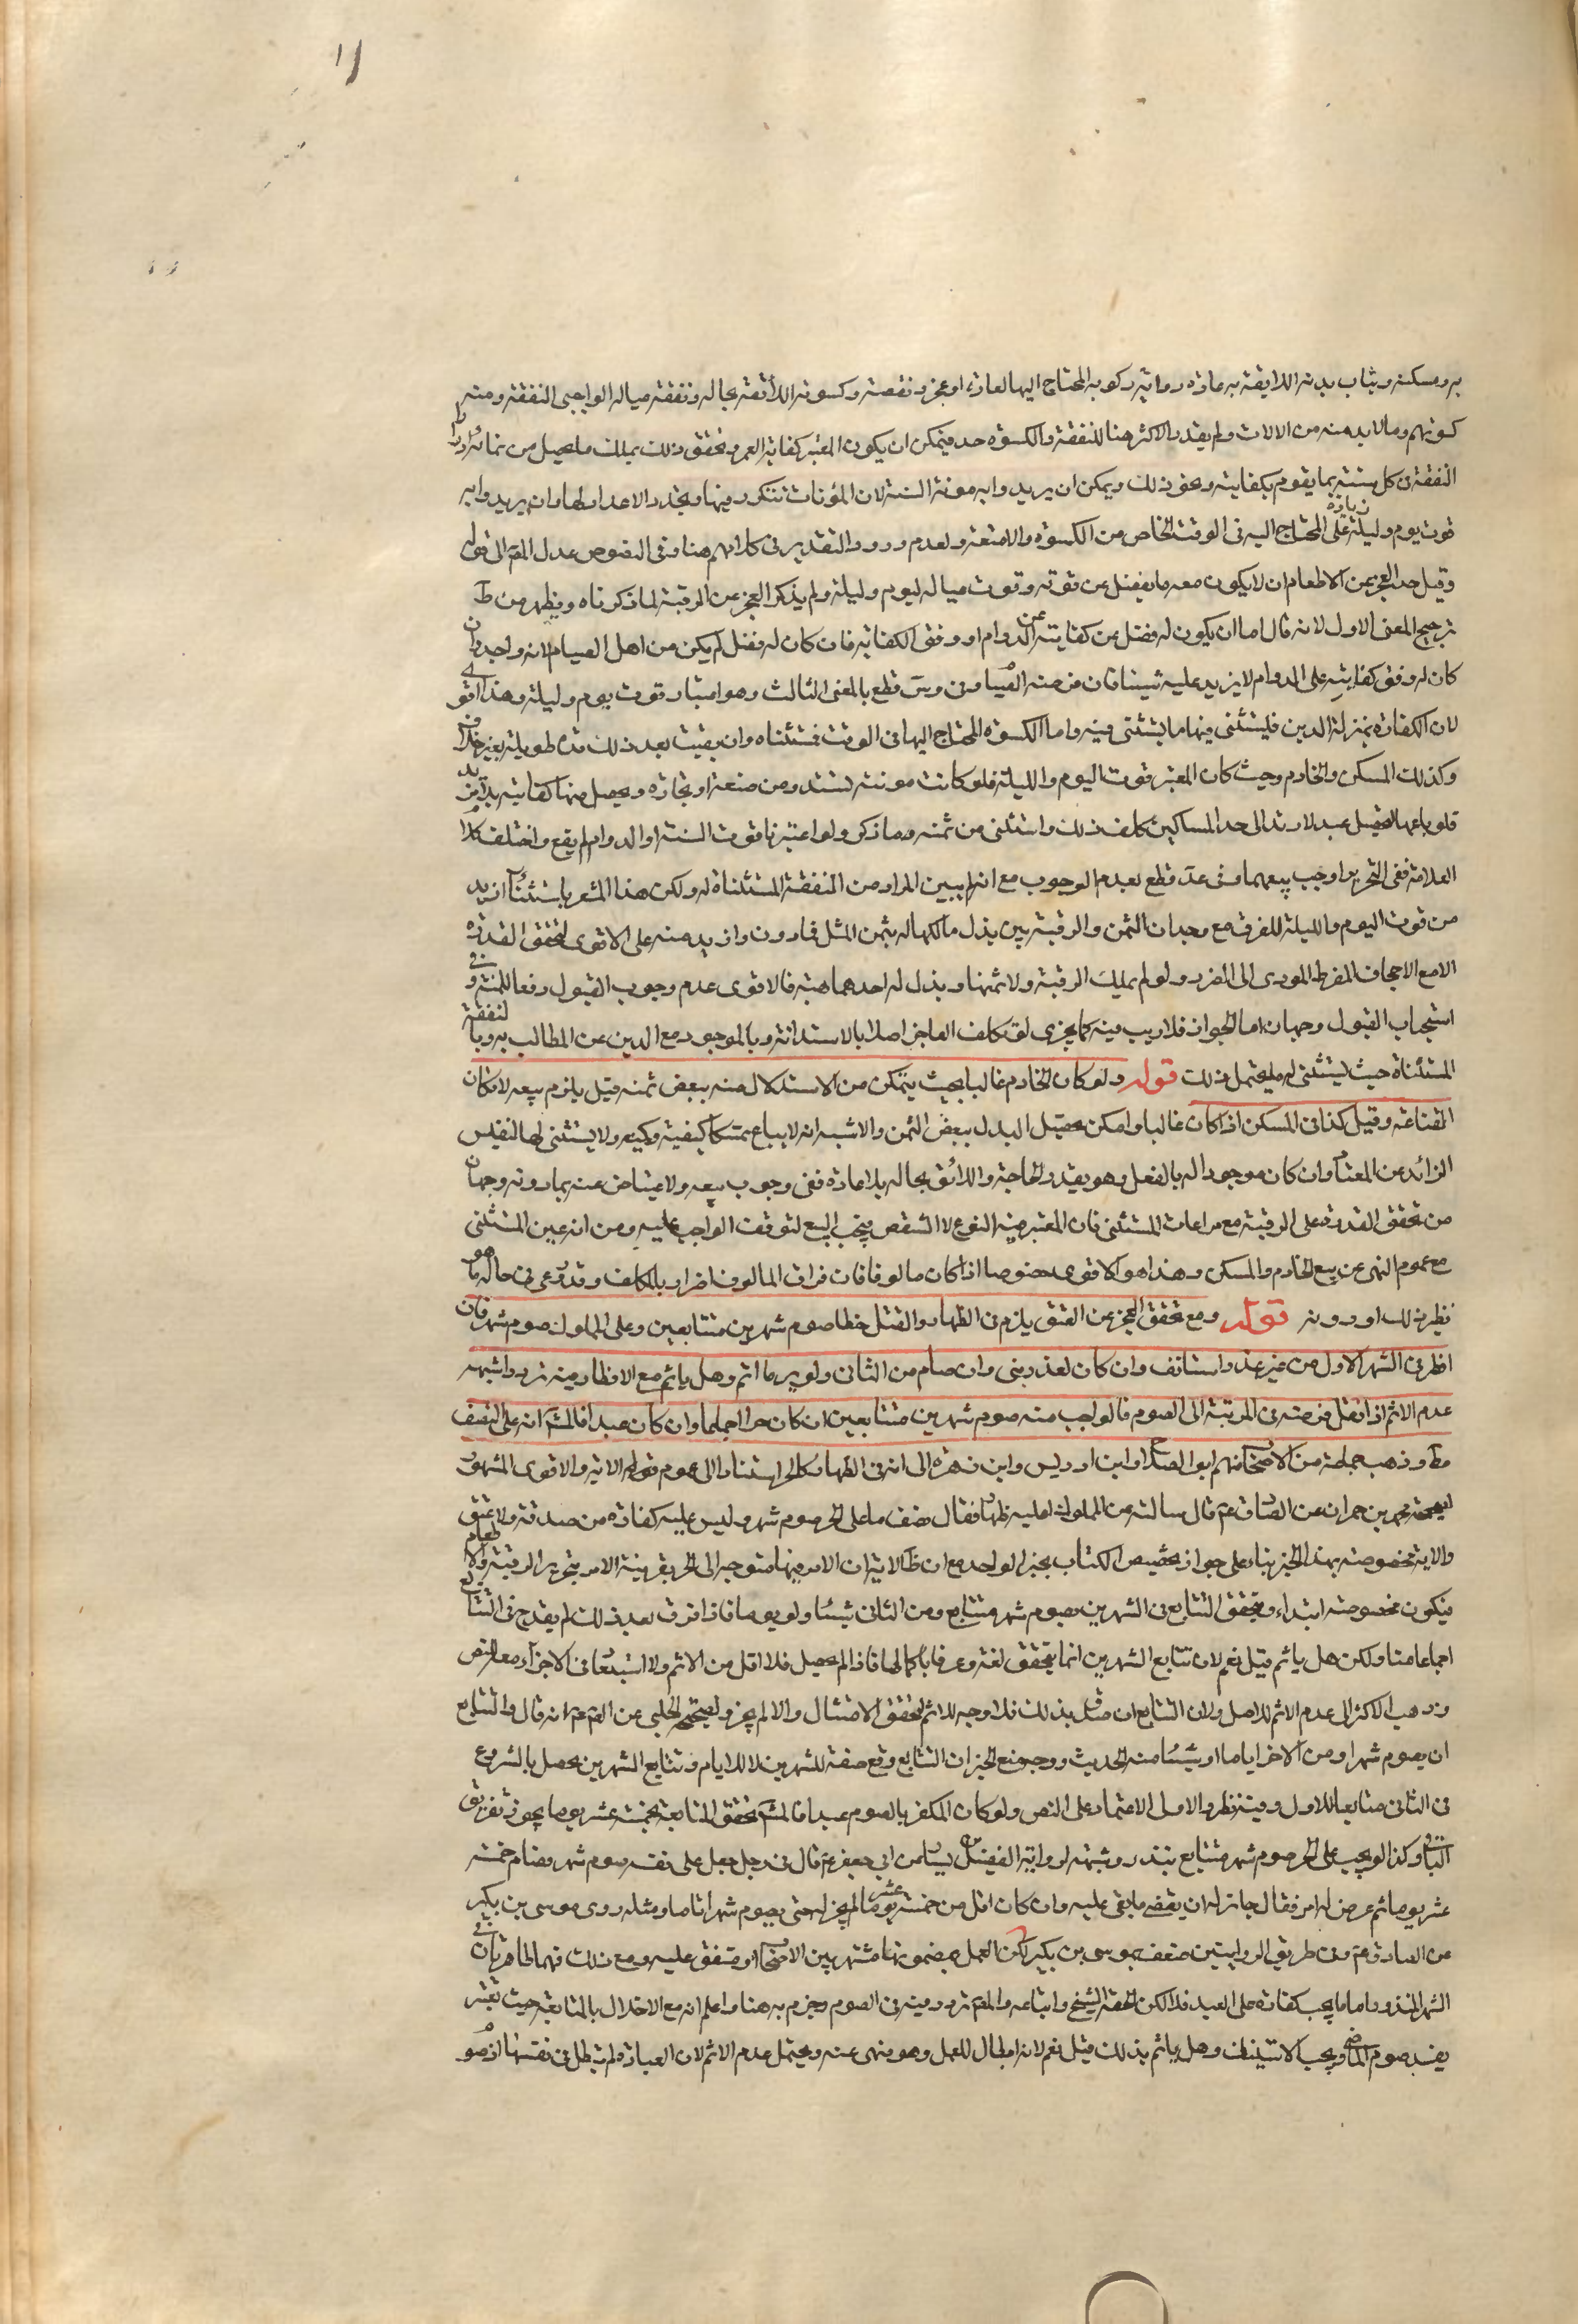 به ومسكنه وثياب بدنه اللايقة به عادة ودابة ركوبه المحتاج اليها لعادة او عجز ونفقته وكسوته اللائقة بحاله ونفقة عياله الواجبى النفقة ومنه
كسوتهم وما لا بد منه من الالات ولم يقدر الاكثر هنا للنفقة والكسوة حد فيمكن ان يكون المعتبر كفاية العمر وتحقق ذلك بملك ما يحصل من نمائه
النفقة فى كل سنة بما يقوم بكفايته ونحو ذلك ويمكن ان يريدوا به مونة السنة لان المؤنات تتكرر فيها ويتجدد الاعداد لها وان يريدوا به
قوت يوم وليلة زيادة على المحتاج اليه فى الوقت الخاص من الكسوة والامتعة ولعدم ورود التقدير فى كلامهم هنا وفى النصوص عدل المص الى قوله
وقيل حد العجز عن الاطعام ان لا يكون معه ما يفضل عن قوته وقوت عياله ليوم وليلة ولم يذكر العجز عن الرقبة لما ذكرناه ويظهر من ط
ترجيح المعنى الاول لانه قال اما ان يكون له فضل عن كفايته على الدوام او وفق الكفاية فان كان له فضل لم يكن من اهل الصيام لانه واجد وان
كان له وفق كفايته على الدوام لا يزيد عليه شيئا فان فرضه الصيام وفى وس قطع بالمعنى الثالث وهو اعتبار قوت يوم وليلة وهذا اقوى
لان الكفارة بمنزلة الدين فليستثنى فيها ما يستثنى فيه واما الكسوة المحتاج اليها فى الوقت فمستثناه وان بقيت بعد ذلك مدة طويلة بغير خلاف
وكذلك المسكن والخادم وحيث كان المعتبر قوت اليوم والليلة فلو كانت مونته تستدر من صنعة او تجارة ويحصل منها كفايته بلا مزيد
فلو باعها لتحصيل عبد لارتد الى حد المساكين كلف ذلك واستثنى من ثمنه ما ذكر ولو اعتبرنا قوت السنة او الدوام لم يقع واختلف كلام
العلامة ففى التحرير اوجب بيعهما وفى عد قطع بعدم الوجوب مع انه لم يبين المراد من النفقة المستثناة له ولكن هذا المشعر باستثناء ازيد
من قوت اليوم والليلة للفرقة مع وجدان الثمن والرقبة بين بذل مالكها له بثمن المثل فما دون وازيد منه على الاقوى لتحقق القدرة
الا مع الاجحاف المفرط المؤدى الى الضرر ولو لم يملك الرقبة ولا ثمنها وبذل له احدهما هبة فالاقوى عدم وجوب القبول دفعا للمنة وفى
استحباب القبول وجهان اما الجواز فلا ريب فيه كما يجزى لو تكلف العاجز اصلا بالاستدانة وبالموجود مع الدين عن المطالب به وبالنفقة
المستثناة حيث يستثنى له ما يحتمل ذلك قوله ولو كان الخادم غاليا بحيث يتمكن من الاستبدال منه ببعض ثمنه قيل يلزم بيعه لامكان
القناعة وقيل كذا فى المسكن اذا كان غاليا وامكن تحصيل البدل ببعض الثمن والاشبه انه لا يباع تمسكا كيفية وكميه ولا يستثنى لها النفيس
الزائد عن المعتاد وان كان موجودا له بالفعل وهو بقدر الحاجة واللائق بحاله بلا عادة ففى وجوب بيعه ولا عتياض عنه بما دونه وجهان
من تحقق القدرة على الرقبة مع مراعات المستثنى فان المعتبر فيه النوع لا الشخص فيجب البيع لتوقف الواجب عليه ومن انه عين المستثنى
مع عموم النهى عن بيع الخادم والمسكن وهذا هو الاقوى خصوصا اذا كان مالوفا فان فراق المالوف اضرار بالمكلف وقد روعى فى حاله ما هو
نظير ذلك او دونه قوله ومع تحقق العجز عن العتق يلزم فى الظهار والقتل خطا صوم شهرين متتابعين وعلى المملوك صوم شهر فان
افطر فى الشهر الاول من غير عذر استانف وان كان لعذر بنى وان صام من الثانى ولو يوما اتم وهل ياثم مع الافطار فيه تردد اشبهه
عدم الاثم اذا انتقل فرضه فى المرتبة الى الصوم فالواجب منه صوم شهرين متتابعين ان كان حرا اجماعا وان كان عبدا فالمش انه على النصف
مط وذهب جماعة من الاصحاب منهم ابو الصلاح وابن ادريس وابن زهرة الى انه فى الظهار كالحر استنادا الى عموم قوله الاية والاقوى المشهور
لصحيحة محمد بن حمران عن الصادق ع قال سالته عن المملوك اعليه ظهار فقال نصف ما على الحر صوم شهر وليس عليه كفارة من صدقة ولا عتق
والاية مخصوصة بهذا الخبر بناء على جواز تخصيص الكتاب بخبر الواحد مع ان ظ الاية ان الامر فيها متوجه الى الحر بقرينة الامر بتحرير الرقبة والاطعام
فيكون مخصوصة ابتداء ويتحقق التتابع فى الشهرين بصوم شهر متتابع ومن الثانى شيئا ولو يوما فاذا فرق بعد ذلك لم يقدح فى التتابع
اجماعا منا ولكن هل ياثم قيل نعم لان تتابع الشهرين انما يتحقق لغة وعرفا باكمالها فاذا لم يحصل فلا اقل من الاثم ولا استبعاد فى الاجزاء معه للنص
وذهب الاكثر الى عدم الاثم للاصل ولان التتابع ان صدق بذلك فلا وجه للاثم لتحقق الامتثال والا لم يجز ولصحيحة الحلبى عن الص ع انه قال والتتابع
ان يصوم شهرا ومن الاخر اياما او شيئا منه الحديث ووجه منع الخبر ان التتابع وقع صفة للشهرين لا للايام وتتابع الشهرين يحصل بالشروع
فى الثانى متابعا للاول وفيه نظر والاولى الاعتماد على النص ولو كان المكفر بالصوم عبدا فالمش تحقق المتابعة بخمسة عشر يوما يجوز تفريق
الباقى وكذا لو وجب على الحر صوم شهر متتابع بنذر وشبهه لرواية الفضيل بن يسار عن ابى جعفر ع قال فى رجل جعل على نفسه صوم شهر فصام خمسة
عشر يوما ثم عرض له امر فقال جائز له ان يقضى ما بقى عليه وان كان اقل من خمسة عشر يوما لم يجز له حتى يصوم شهرا تاما ومثله روى موسى بن بكير
عن الصادق ع وفى طريق الروايتين ضعف بموسى بن بكير لكن العمل بمضمونها مشتهر بين الاصحاب او متفق عليه ومع ذلك فهما ظاهرتان فى
الشهر المنذور اما ما يجب كفارة على العبد فلا لكن الحقه الشيخ واتباعه والمص تردد فيه فى الصوم وجزم به هنا واعلم انه مع الاخلال بالمتابعة حيث تعتبر
يفسد صوم الماضى ويجب الاستيناف وهل ياثم بذلك قيل نعم لانه ابطال للعمل وهو منهى عنه ويحتمل عدم الاثم لان العبادة لم تبطل فى نفسها اذ صو